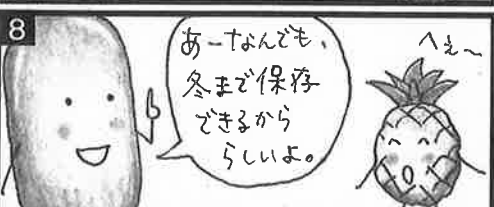 8
あーなんでも、
冬まで保存
できるから
らしいよ。
へぇ〜